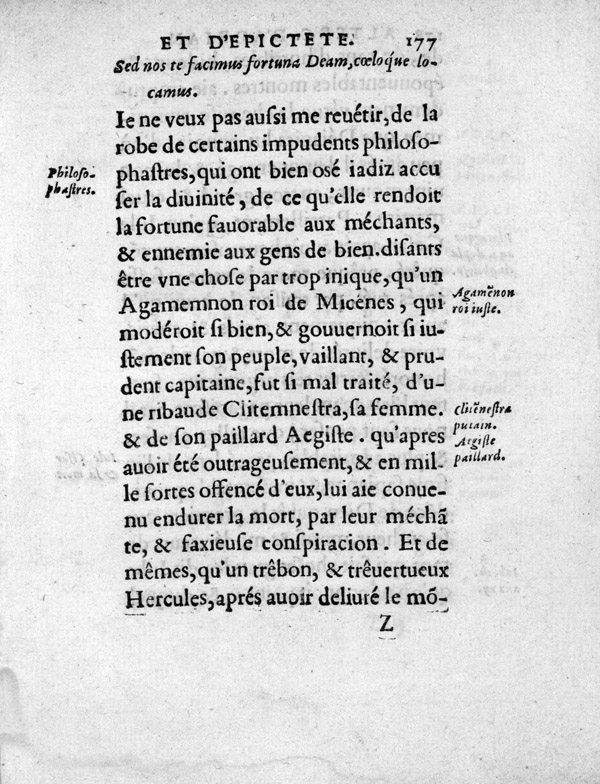 ET D'EPICTETE. 177
Sed nos te facimus fortuna Deam, cœloq́ue lo-
camus.
Ie ne veux pas auſsi me reuétir, de la
robe de certains impudents philoſo-
phaſtres, qui ont bien oſé iadiz accu
ſer la diuinité, de ce qu'elle rendoit
la fortune fauorable aux méchants,
& ennemie aux gens de bien. diſants
être vne choſe par trop inique, qu'un
Agamemnon roi de Micènes, qui
modéroit ſi bien, & gouuernoit ſi iu-
ſtement ſon peuple, vaillant, & pru-
dent capitaine, fut ſi mal traité, d'u-
ne ribaude Clitemneſtra, ſa femme.
& de ſon paillard Aegiſte. qu'apres
auoir été outrageuſement, & en mil-
le ſortes offencé d'eux, lui aie conue-
nu endurer la mort, par leur méchã
te, & faxieuſe conſpiracion. Et de
mêmes, qu'un trêbon, & trêuertueux
Hercules, aprés auoir deliuré le mõ-
Z
Philoſo-
phaſtres.
Agamẽnon
roi iuſte.
clitẽneſtra
putain.
Aegiſte
paillard.